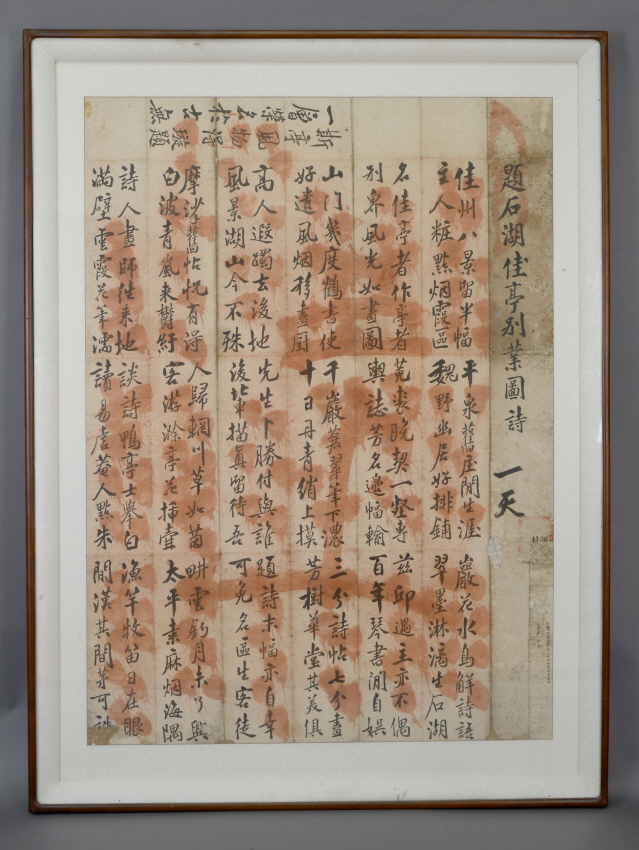 題石湖佳亭別業圖詩 一天
佳州八景留半幅
主人粧點烟霞區
名佳亭者作亭者
別界風光如畫圖
山门幾度鶴書使
好遣風烟移畫厨
高人遐躅去後地
風景湖山今不殊
摩挲舊帖怳有淂
白波青嵐来樹紆
詩人畫師往来地
滿壁雲霞花筆濡
平泉舊庄閒生涯
魏野幽居好排鋪
菟裘晩契一壑專
輿誌芳名邊幅輸
千巖蒼翠筆下濃
十日丹青綃上摸
先生卜勝付與誰
後輩描眞留待吾
人歸輞川草如茵
客游滁亭花揷壺
談詩鴨亭士擧白
讀易虛菴人點朱
巖花水鳥觧詩語
翠墨淋漓生石湖
兹邱遇主亦不偶
百年琴書閒自娛
三分詩帖七分畫
芳樹華堂其美俱
題詩末幅亦自幸
可免名區生客徒
畊雲釣月未了興
太平桑麻烟海隅
漁竿牧笛日在眼
閒漢其間茅可誅
斯亭風物淂題
一層榮名於古無